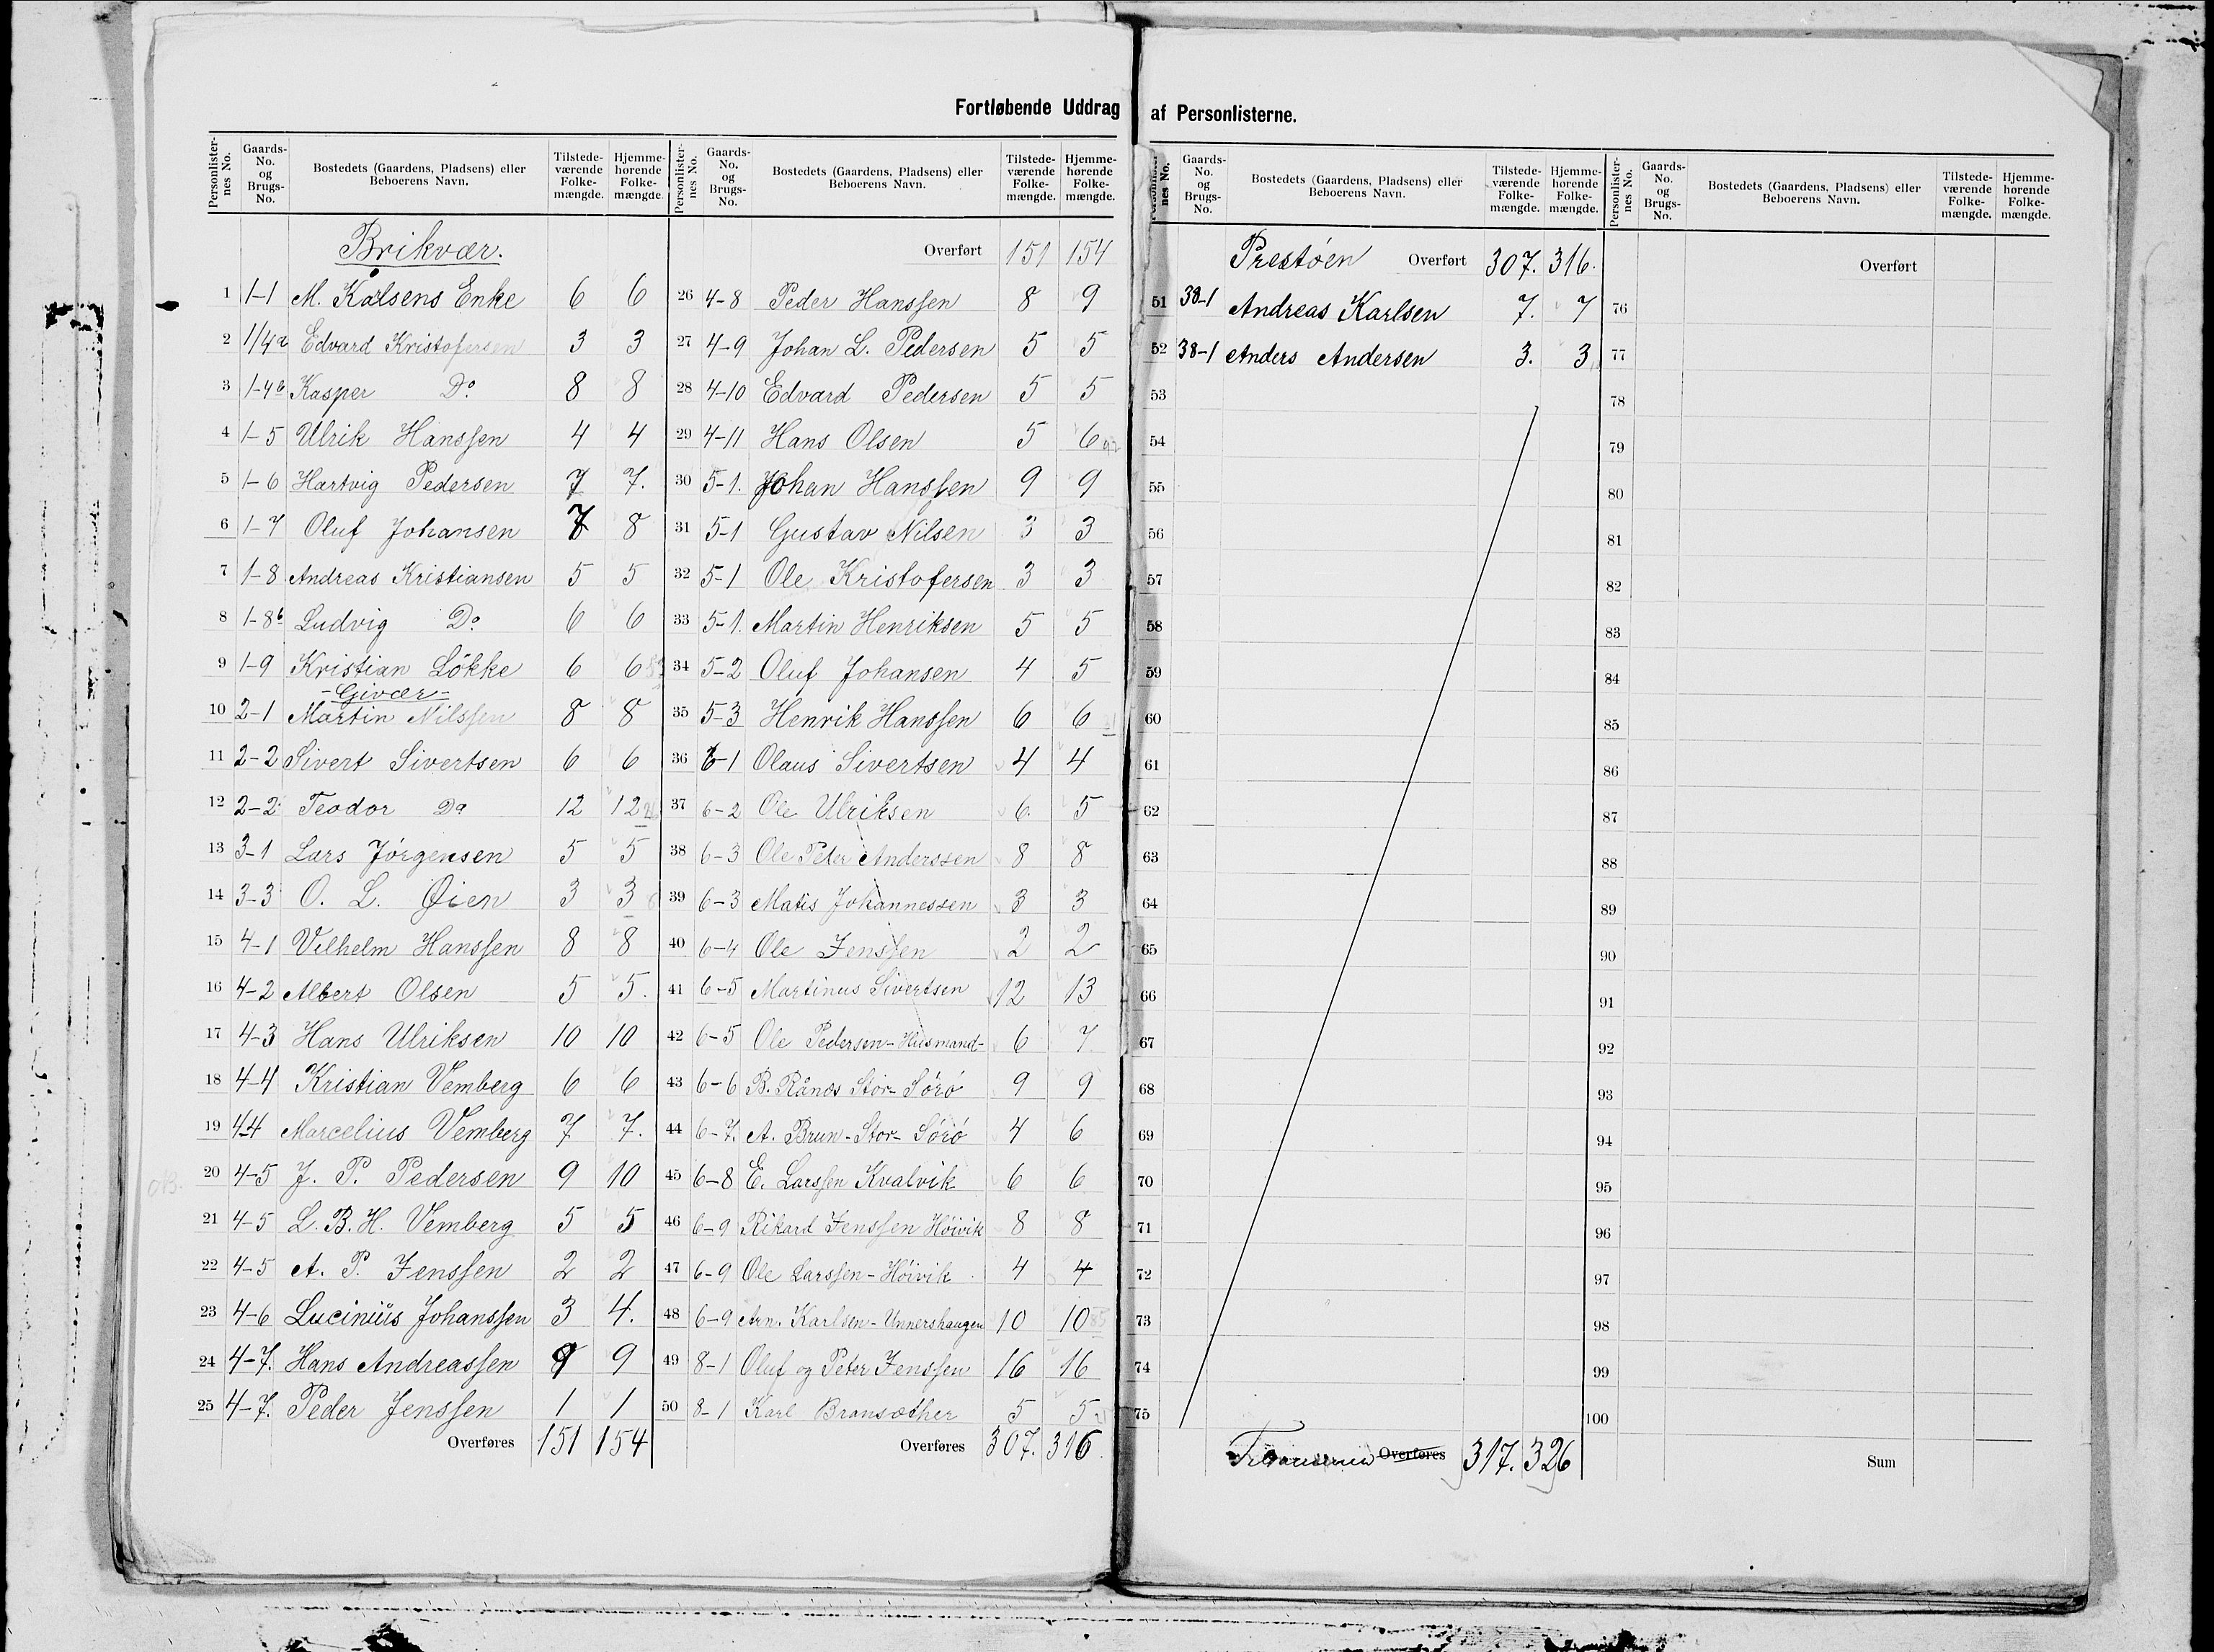 Fortløbende Uddrag af Personlisterne.
Personlisternes No. Gaards-No. og Brugs-No. Bostedets (Gaardens, Pladsens) eller Beboerens Navn. Tilstedeværende Folkemængde. Hjemmehørende Folkemængde.
Brikvær.
1 1-1 M. Kalsens Enke 6 6
2 1/4a Edvard Kristofersen 3 3
3 1-4b Kasper Do 8 8
4 1-5 Ulrik Hanssen 4 4
5 1-6 Hartvig Pedersen 7 7.
6 1-7 Oluf Johansen 7 8
7 1-8 Andreas Kristiansen 5 5
8 1-8b Ludvig Do 6 6
9 1-9 Kristian Løkke 6 6
-Givær-
10 2-1 Martin Nilssen 8 8
11 2-2 Sivert Sivertsen 6 6
12 2-2 Teodor Do 12 12
13 3-1 Lars Jörgensen 5 5
14 3-3 O. L. Øien 3 3
15 4-1 Vilhelm Hanssen 8 8
16 4-2 Albert Olsen 5 5.
17 4-3 Hans Ulriksen 10 10
18 4-4 Kristian Vemberg 6 6
19 4-4 Marcelius Vemberg 7 7.
20 4-5 J. P. Pedersen 9 10
21 4-5 L. B. H. Vemberg 5 5
22 4-5 A. P. Jenssen 2 2
23 4-6 Lucinius Johanssen 3 4.
24 4-7. Hans Andreassen 9 9
25 4-7. Peder Jenssen 1 1
Overføres 151 154
Personlisternes No. Gaards-No. og Brugs-No. Bostedets (Gaardens, Pladsens) eller Beboerens Navn. Tilstedeværende Folkemængde. Hjemmehørende Folkemængde.
Overført 151 154
26 4-8 Peder Hanssen 8 9
27 4-9 Johan L. Pedersen 5 5
28 4-10 Edvard Pedersen 5 5
29 4-11 Hans Olsen 5 6
30 5-1. Johan Hanssen 9 9
31 5-1 Gustav Nilsen 3 3
32 5-1 Ole Kristofersen 3 3
33 5-1. Martin Henriksen 5 5
34 5-2 Oluf Johansen 4 5
35 5-3 Henrik Hanssen 6 6
36 6-1 Olaus Sivertsen 4 4
37 6-2 Ole Ulriksen 6. 5
38 6-3 Ole Peter Anderssen 8 8
39 6-3 Matis Johannessen 3 3
40 6-4 Ole Jenssen 2 2
41 6-5 Martinus Sivertsen 12 13
42 6-5 Ole Pedersen-Husmand- 6 7
43 6-6 B. Rånes Stor-Sørø 9 9
44 6-7. A. Brun-Stor-Sørø 4 6
45 6-8 E. Larssen Kvalvik 6 6
46 6-9 Rikard Jenssen Höivik 8 8
47 6-9 Ole Larssen-Höivik 4 4
48 6-9 Arn. Karlsen-Unnershaugen 10 10
49 8-1 Oluf og Peter Jenssen 16 16
50 8-1 Karl Bransæther 5 5
Overføres 307. 316
Personlisternes No. Gaards-No. og Brugs-No. Bostedets (Gaardens, Pladsens) eller Beboerens Navn. Tilstedeværende Folkemængde. Hjemmehørende Folkemængde.
Prestöen Overført 307. 316.
51 38-1 Andreas Karlsen 7. 7
52 38-1 Anders Andersen 3. 3
53
54
55
56
57
58
59
60
61
62
63
64
65
66
67
68
69
70
71
72
73
74
75
Overføres 317. 326
Personlisternes No. Gaards-No. og Brugs-No. Bostedets (Gaardens, Pladsens) eller Beboerens Navn. Tilstedeværende Folkemængde. Hjemmehørende Folkemængde.
Overført
76
77
78
79
80
81
82
83
84
85
86
87
88
89
90
91
92
93
94
95
96
97
98
99
100
Sum